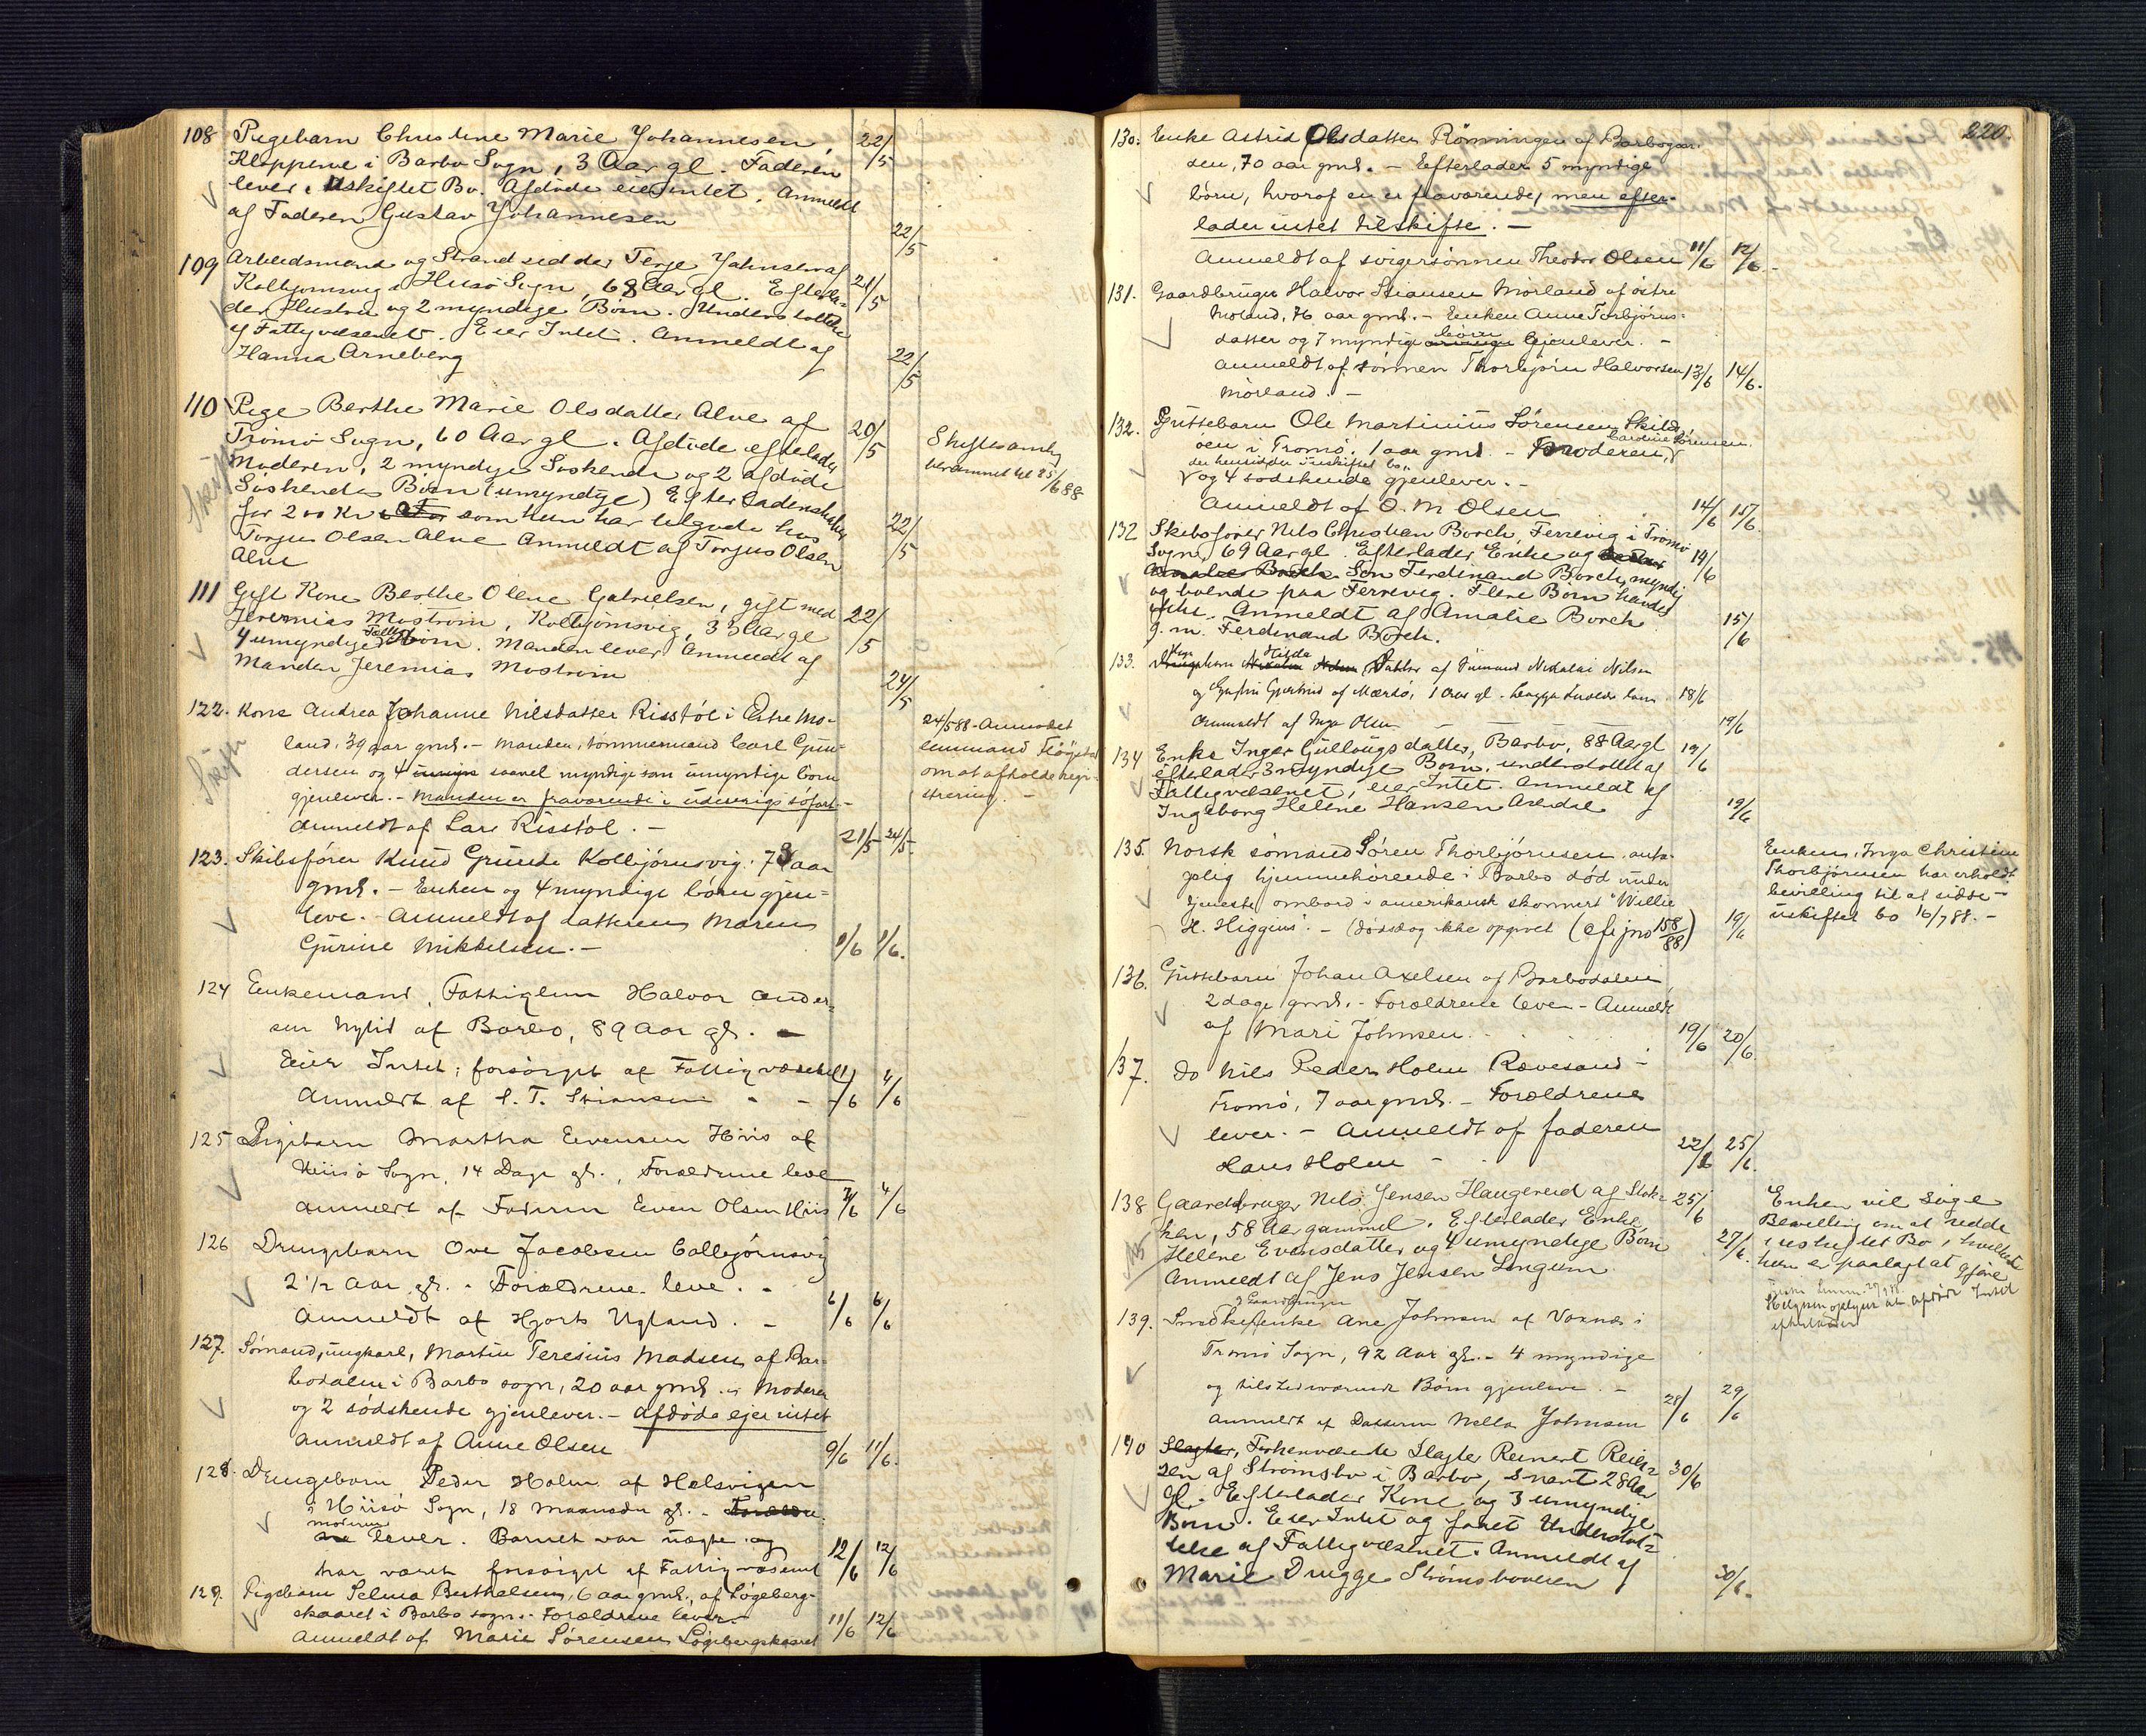 108 Pigebarn Christine Marie Johannesen, 22/5
Kleppene i Barbo Sogn, 3 Aar gl. Faderen
lever i Uskiftet Bo. Afdøde eier intet. Anmeldt
af Faderen Gustav Johannesen 22/5
109 Arbeidsmand og Strandsidder Terje Jahnsen af 21/5
Kolbjornsvig i Hisø Sogn, 68 Aar gl. Efterla-
der Hustru og 2 myndige Børn. Understøttet
af Fattigvæsenet. Eier Intet. Anmeldt af
Hanna Arneberg 22/5
110 Pige Berthe Marie Olsdatter Alve af 20/5
Tromø Sogn, 60 Aar gl. Afdøde efterlader
Moderen, 2 myndige Søskende og 2 afdøde
Søskendes Børn (umyndige) Efterladenskaber
for 200 Kr som hun har tilgode hos
Torjus Olsen Alve Anmeldt af Torjus Olsen 22/5
Alve
Skifte
Skiftesamling
berammet til 25/6 88
111 Gift Kone Berthe Olene Gabrielsen, gift med 22/5
Jeremias Mostrøm, Kolbjørnsvig, 33 Aar gl
4 umyndige Fælles Børn. Manden lever Anmeldt af
Manden Jeremias Mostrøm 24/5
122. Kone Andrea Johanne Nilsdatter Risstøl i Østre Mo-
land, 39 aar gml. - Manden, tømmermand Carl Gun-
dersen og 4 saavel myndige som umyndige børn
gjenlever. - Manden er fraværende i udenrigs søfart. -
Anmeldt af Lars Risstøl. - 21/5 24/5.
Skifte
24/5 88. Anmodet
lensmand Fløystad
om at afholde regi-
strering. -
123. Skibsfører Knud Grunde Kolbjørnsvig. 73 aar
gml. - Enken og 4 myndige børn gjen-
leve. - Anmeldt af datteren Maren
Gurine Mikkelsen. - 1/6 1/6.
124 Enkemand, Fattiglem Halvor Ander-
sen Nylid af Barbo, 89 Aar gl. -
Eier Intet; forsørget af Fattigvæsenet
Anmeldt af S. T. Stiansen - - 1/6 4/6
125 Pigebarn Martha Evensen Hiis af
Hiisø Sogn, 14 Dage gl., Forældrene leve
Anmeldt af Faderen Even Olsen Hiis 3/6 4/6
126 Drengebarn Ove Jacobsen Colbjørnsvig
2 1/2 Aar gl. - Forældrene leve. -
Anmeldt af Hjorth Ugland. - 6/6 6/6
127. Sømand, ungkarl, Martin Teresius Madsen af Bar-
bodalen i Barbo sogn, 20 aar gml. - Moderen
og 2 södskende gjenlever. - Afdøde ejer intet
Anmeldt af Anne Olsen 9/6 11/6.
128. Drengebarn Peder Holm af Helsvigen
i Hiisø Sogn, 18 Maaneder gl. - Foræld
moderen lever. Barnet var uægte og
har været forsørget af Fattigvæsenet 12/6 12/6
129. Pigebarn Selma Berthelsen, 6 aar gml., af Løgeberg-
skaaret i Barbo sogn. Forældrene lever. -
Anmeldt af Marie Sørensen Løgebergskaaret 11/6 12/6
220.
130. Enke Astrid Olsdatter Rønningen af Barbogaar-
den, 70 aar gml. - Efterlader 5 myndige
børn, hvoraf en er fraværende, men efter-
lader intet til skifte. -
Anmeldt af svigersønnen Theodor Olsen 11/6 12/6.
131. Gaardbruger Halvor Stiansen Mørland af østre
Moland, 76 aar gml. - Enken Anne Torbjørns-
datter og 7 myndige børn gjenlever. -
Anmeldt af sønnen Thorbjørn Halvorsen 13/6 14/6.
Mørland. -
132. Guttebarn Ole Martinius Sørensen Skilsø
øen i Tromø, 1 aar gml. - Moderen, Caroline Sørensen
der hensidder i uskiftet bo,
og 4 sødskende gjenlever. -
Anmeldt af O. M. Olsen 14/6 15/6.
132 Skibsfører Nils Christian Borch, Ferrevig i Tromø
Sogn, 69 Aar gl. Efterlader Enke og 14/6
Amalie Borch. Søn Ferdinand Borch, myndig
og boende paa Ferrevig. Flere Børn havdes
ikke. Anmeldt af Amalie Borch 15/6
g. m. Ferdinand Borch.
133. Pigebarn Hilda Datter af Sømand Nikolai Nilsen
og Gustin Gjertrud af Mærdø, 1 Aar gl. 18/6
Anmeldt af Inga Olsen 19/6
134 Enke Inger Gullougsdatter, Barbo, 88 Aar gl 19/6
efterlader 3 myndige Børn, understøttet af
Fattigvæsenet, eier Intet. Anmeldt af
Ingeborg Helene Hansen Arendal 19/6
135. Norsk sømand Søren Thorbjørnsen anta-
gelig hjemmehørende i Barbo død under
tjeneste ombord i amerikansk skonnert "Willie
H. Higgins". - (dødsdag ikke opgivet (cfr jno 158/88) 19/6
Enken, Inga Christine
Thorbjørnsen har erholdt
bevilling til at sidde
i uskiftet bo 16/7 88. -
136. Guttebarn Johan Axelsen af Barbodalen
2 dage gml. - Forældrene lever - Anmeldt
af Mari Johnsen. 19/6 20/6.
137. Do Nils Peder Holm Rævesand -
Tromø, 7 aar gml. - Forældrene
lever. - Anmeldt af faderen
Hans Holm - 22/6 25/6.
138 Gaardbruger Nils Jensen Haugereid af Stok- 25/6
ken, 58 Aar gammel. Efterlader Enke,
Helene Evensdatter og 4 umyndige Børn 27/6.
Anmeldt af Jens Jensen Longum
Enken vil søge
Bevilling om at sidde
i uskiftet Bo, hvilket
hun er paalagt at gjøre
139. Smed & Gaardbrugerenke Ane Johnsen af Voxnæs i
Tromø Sogn, 92 Aar gl. - 4 myndige
og tilstedeværende Børn gjenleve. -
Anmeldt af Datteren Nella Johnsen 28/6 29/6
140 Slagter, Forhenværende Slagter Reinert Reier- 30/6
sen af Strømsbo i Barbo, snart 28 Aar
gl. Efterlader Kone og 3 umyndige
Børn. Eier Intet og faaet Understøt-
telse af Fattigvæsenet. Anmeldt af
Marie Drugge Strømsboveien 30/6.